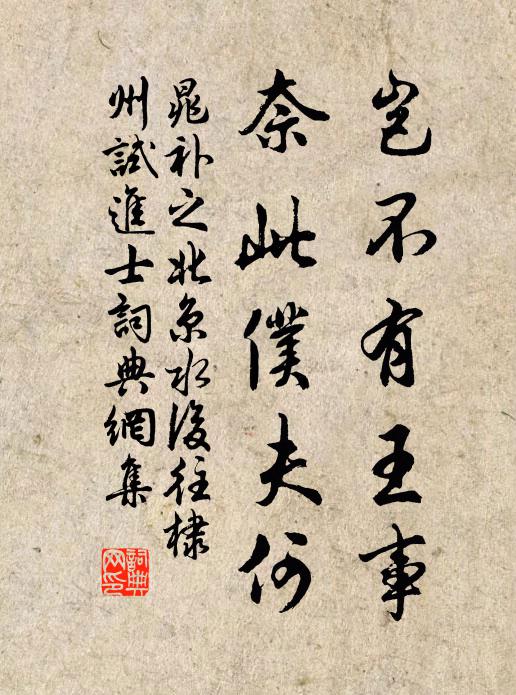 豈不有王事
奈此僕夫何
晁補之北京水後往棣
州試進士詞典網集
詞典
网印